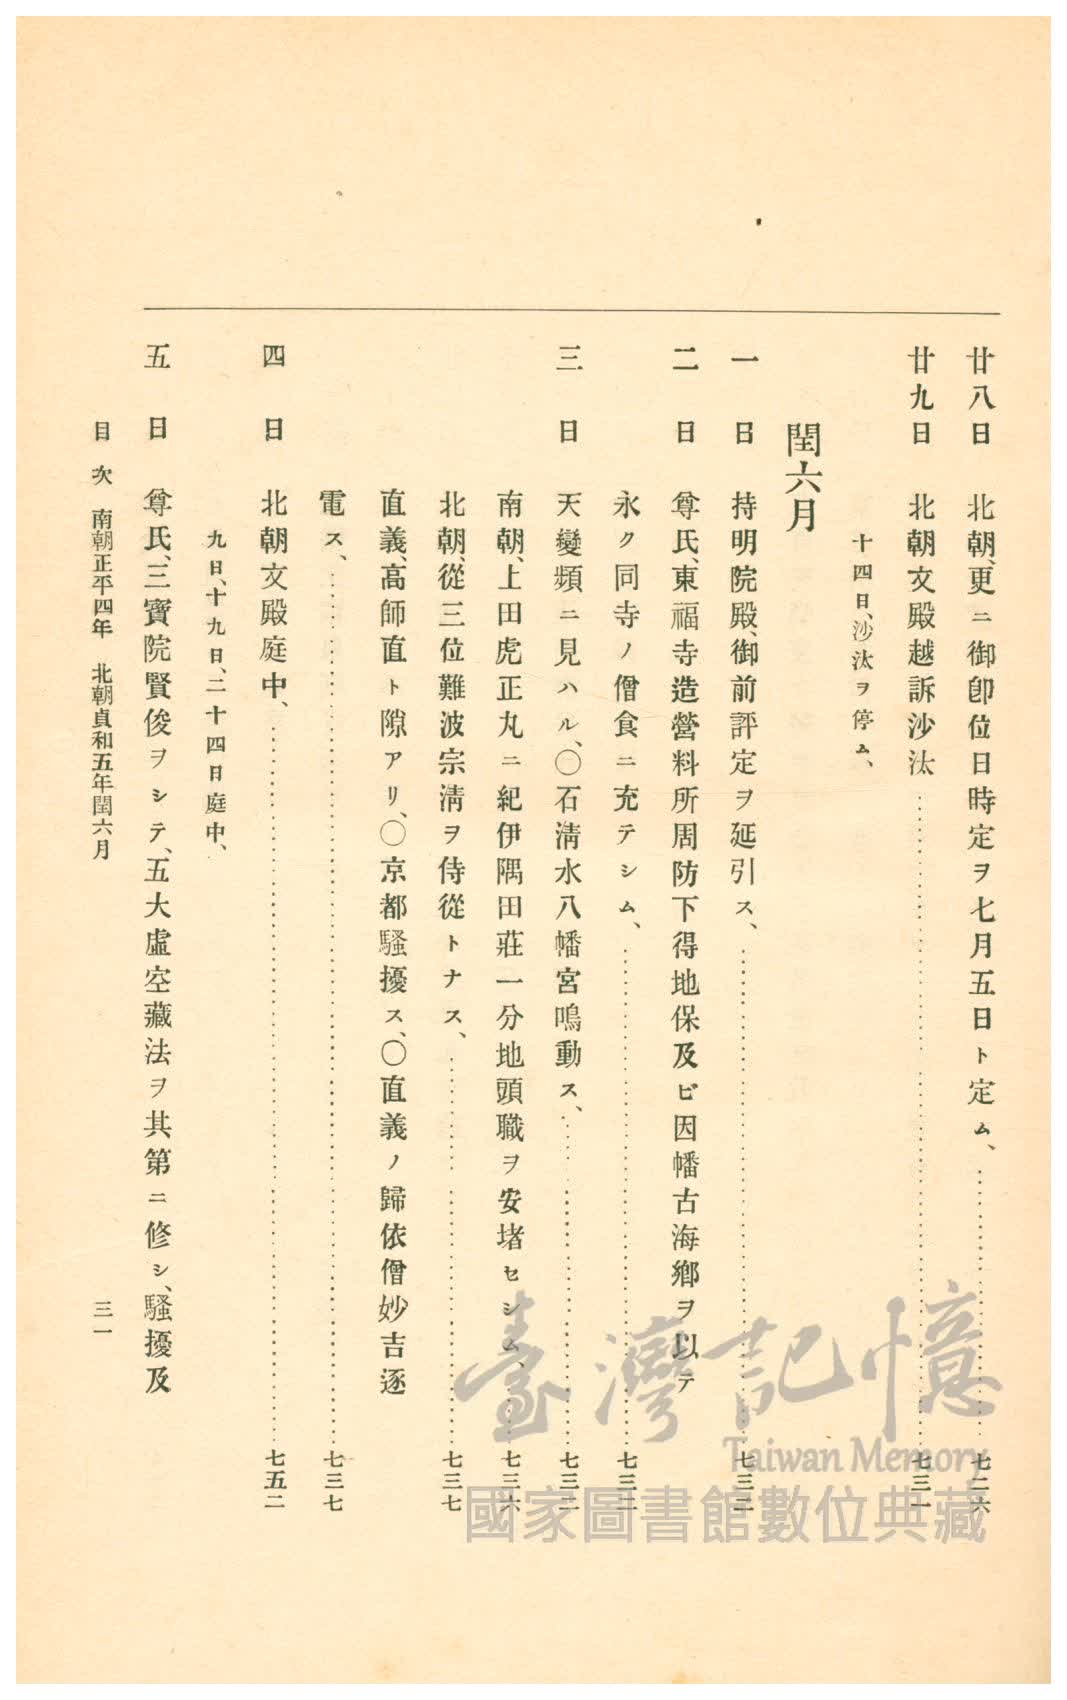 廿八日　北朝、更ニ御卽位日時定ヲ七月五日ト定ム、……七二六
廿九日　北朝文殿越訴沙汰……七三一
十四日、沙汰ヲ停ム、
閏六月
一日　持明院殿、御前評定ヲ延引ス、……七三二
二日　尊氏、東福寺造營料所周防下得地保及ビ因幡古海鄕ヲ以テ
永ク同寺ノ僧食ニ充テシム、……七三二
三日　天變頻ニ見ハル、〇石淸水八幡宮鳴動ス、……七三二
南朝、上田虎正丸ニ紀伊隅田莊一分地頭職ヲ安堵セシム、……七三六
北朝、從三位難波宗淸ヲ侍從トナス、……七三七
直義、高師直ト隙アリ、〇京都騷擾ス、〇直義ノ歸依僧妙吉逐
電ス、……七三七
四日　北朝文殿庭中、……七五二
九日、十九日、二十四日庭中、
五日　尊氏、三寶院賢俊ヲシテ、五大虛空藏法ヲ其第ニ修シ、騷擾及
目次　南朝正平四年　北朝貞和五年閏六月　三一
臺灣記憶
Taiwan Memory
國家圖書館數位典藏